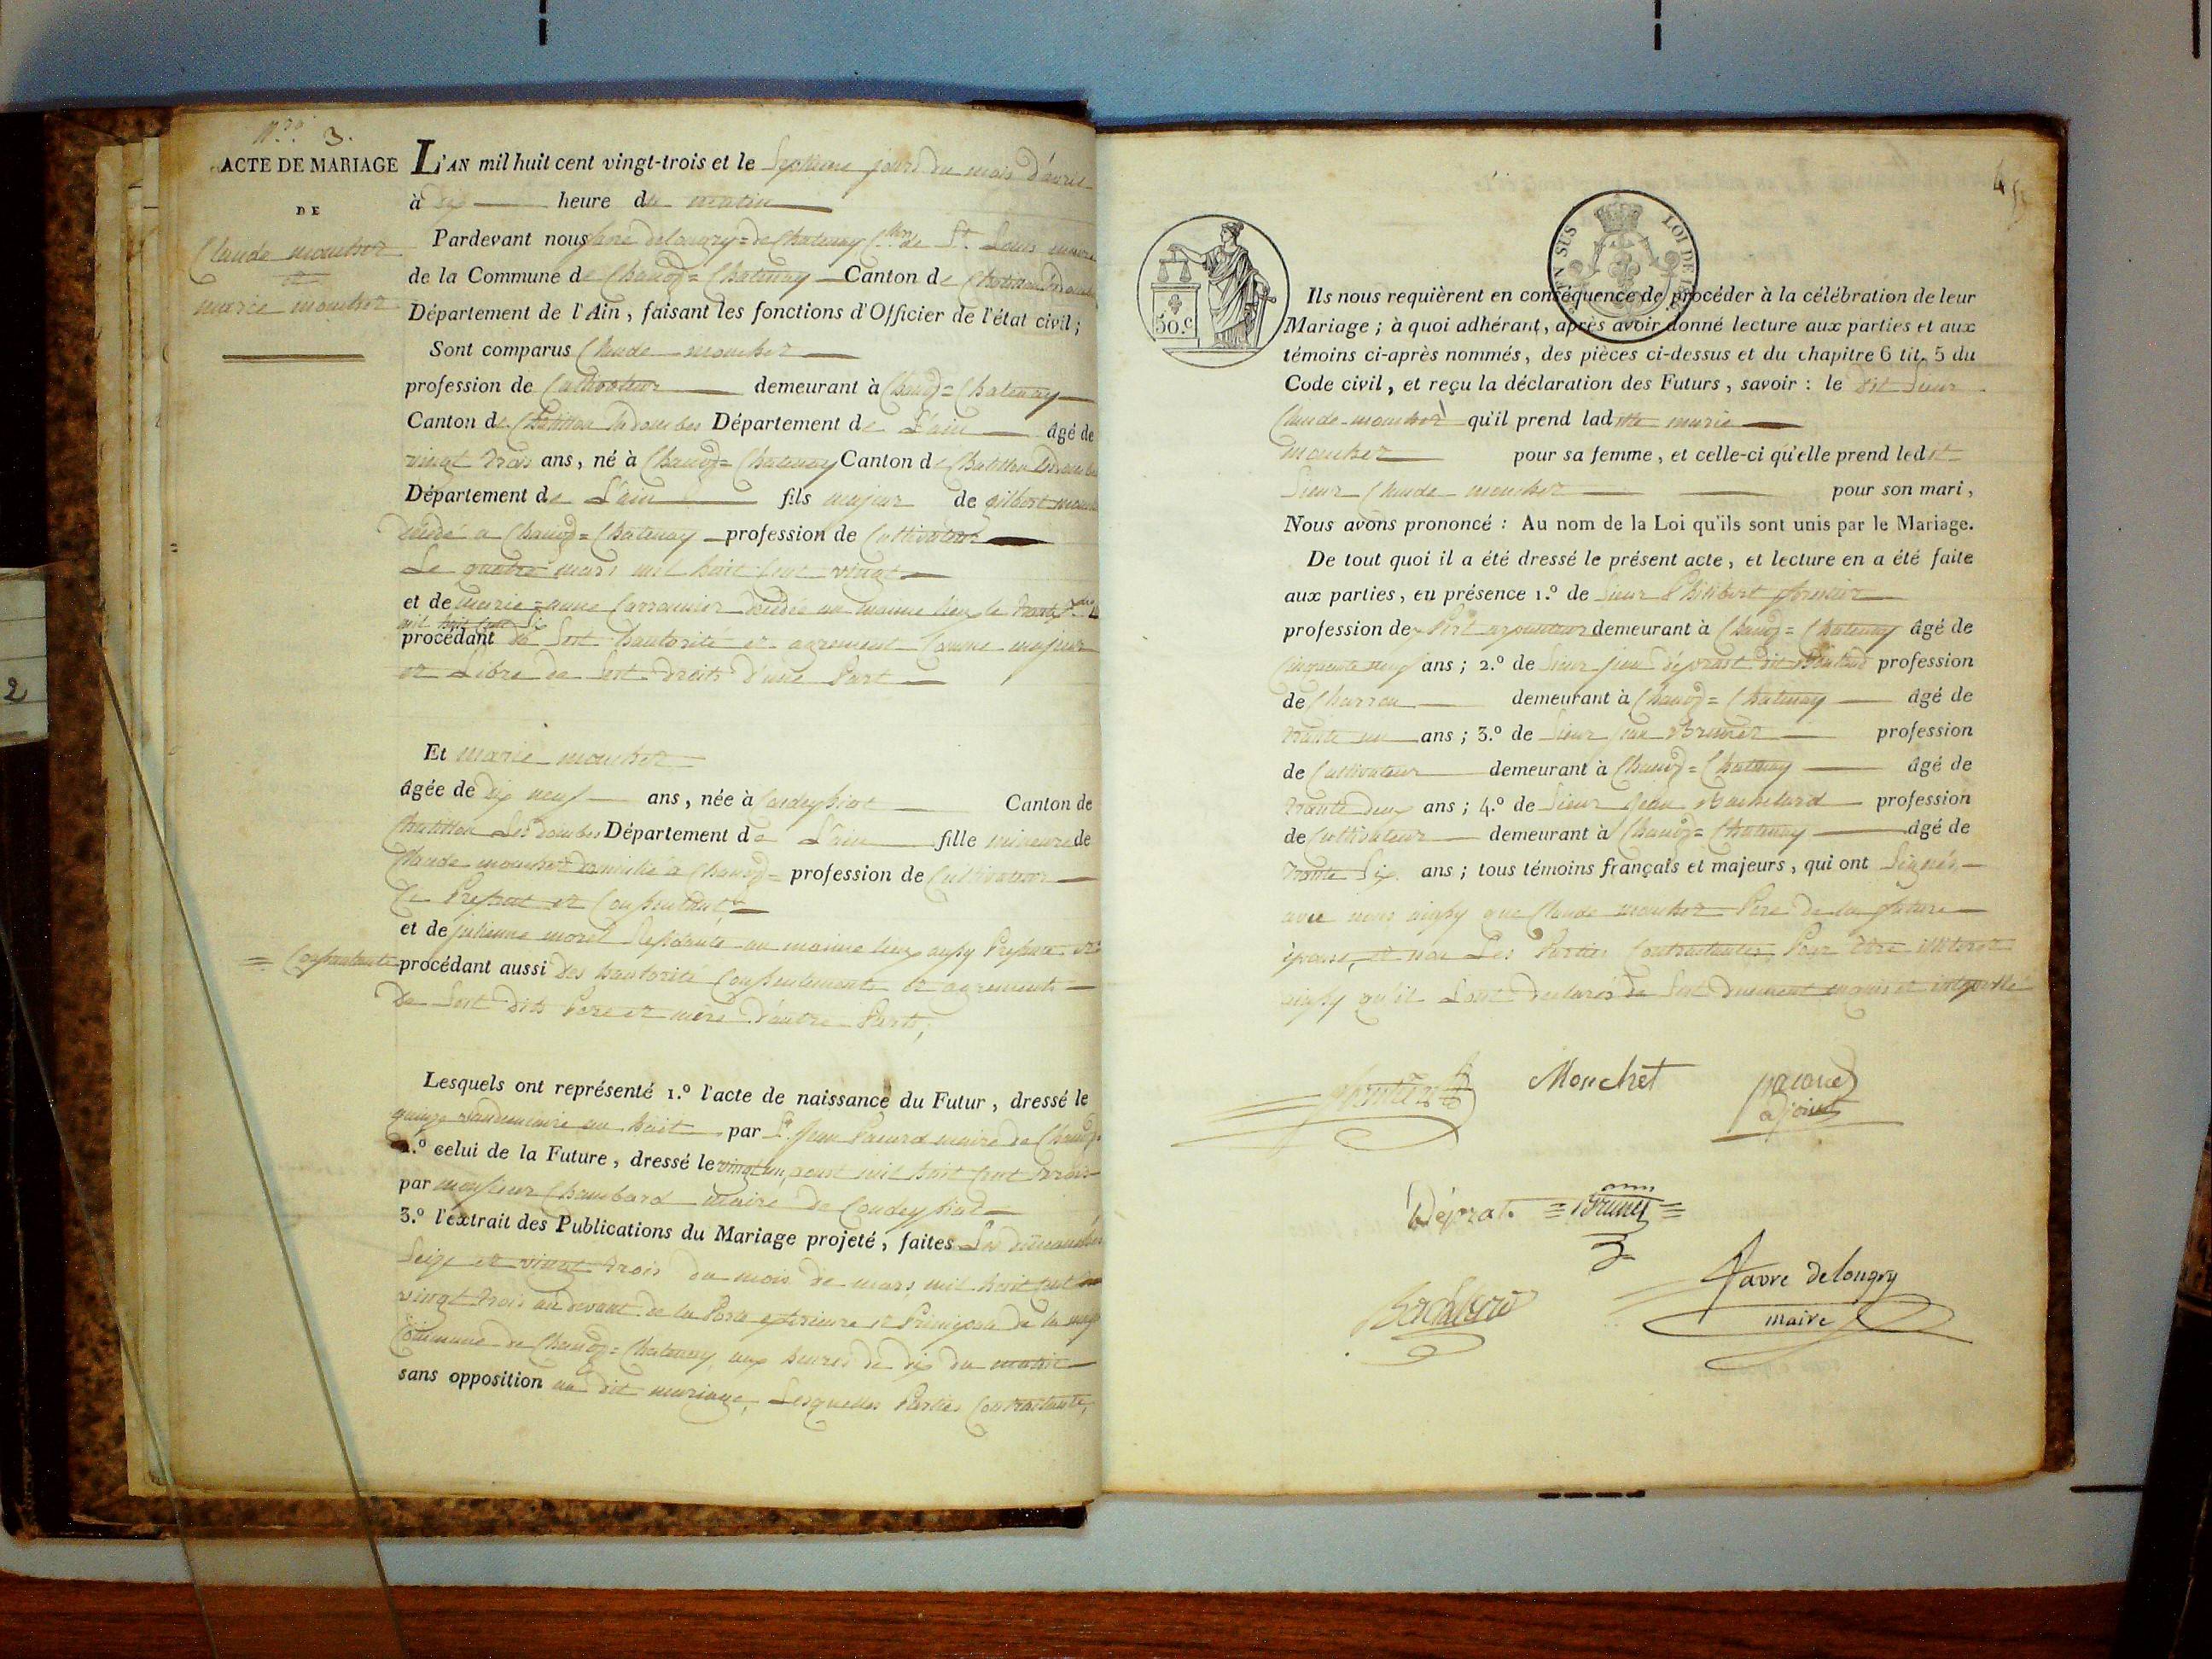 N.ro 3.
ACTE DE MARIAGE
DE
Claude mouchet
et
marie mouchet
L'AN mil huit cent vingt-trois et le Septieme jours du mois d'avril
à dix heure du matin
Pardevant nous favre delongry = de Chatenay Cher de St. Louis maire
de la Commune de Chanoz = Chatenay Canton de Chatillon
Département de l'Ain, faisant les fonctions d'Officier de l'état civil;
Sont comparus Claude mouchet
profession de Cultivateur demeurant à Chanoz = Chatenay
Canton de Chatillon les dombes Département de L'ain âgé de
vingt trois ans, né à Chanoz = Chatenay Canton de Chatillon les dombes
Département de L'ain fils majeur de gilbert
décédé a Chanoz = Chatenay profession de Cultivateur
Le quatre mars mil huit Cent vingt
et de marie = anne décédée au même lieu le
mil huit Cent Six
procédant de Sest hautorité et agrement Comme majeur
et Libre de Sest droits d'une Part
Et marie mouchet
âgée de dix neuf ans, née à Condeyssiat Canton de
Chatillon Les dombes Département de L'ain fille mineure de
Claude mouchet domicilié à Chanoz = profession de Cultivateur
Ci Present et Consentant
et de julienne morel Residante au même lieu aussy Presente et
= Consentante
procédant aussi des hautorité Consentement et agrements
De Sest dits Pere et mère d'autre Part;
Lesquels ont représenté 1.º l'acte de naissance du Futur, dressé le
vandemiaire an huit par Sr. Jean Pacard maire de Chanoz
2.º celui de la Future, dressé le vingt un aoust mil huit Cent trois
par monsieur Chambard maire de Condeyssiat
3.º l'extrait des Publications du Mariage projeté, faites Les dimanches
Seize et vingt trois du mois de mars mil huit Cent
vingt trois au devant de la Porte exterieure et Principale de la
Commune de Chanoz = Chatenay aux heures de dix du matin
sans opposition au dit mariage, Lesquelles Parties Contractante,
50.C
LOI DE
Ils nous requièrent en conséquence de procéder à la célébration de leur
Mariage; à quoi adhérant, après avoir donné lecture aux parties et aux
témoins ci-après nommés, des pièces ci-dessus et du chapitre 6 tit. 5 du
Code civil, et reçu la déclaration des Futurs, savoir: le dit Sieur
Claude mouchet qu'il prend ladite marie
mouchet pour sa femme, et celle-ci qu'elle prend ledit
Sieur Claude mouchet pour son mari,
Nous avons prononcé: Au nom de la Loi qu'ils sont unis par le Mariage.
De tout quoi il a été dressé le présent acte, et lecture en a été faite
aux parties, en présence 1.º de Sieur Philibert
profession de demeurant à Chanoz = Chatenay âgé de
Cinquante neuf ans; 2.º de Sieur déprast dit profession
de Charron demeurant à Chanoz = Chatenay âgé de
trante un ans; 3.º de Sieur Brunet profession
de Cultivateur demeurant à Chanoz = Chatenay âgé de
trante deux ans; 4.º de Sieur Jean profession
de Cultivateur demeurant à Chanoz = Chatenay âgé de
trante Six ans; tous témoins français et majeurs, qui ont Signés
avec nous ainsy que Claude mouchet Père de la future
épouse, et non Les Parties Contractantes Pour être
ainsy qu'il L'ont declarés de Sest duement requis et
Mouchet
pacoud
adjoint
Déprat = Brunet =
favre delongry
maire
2